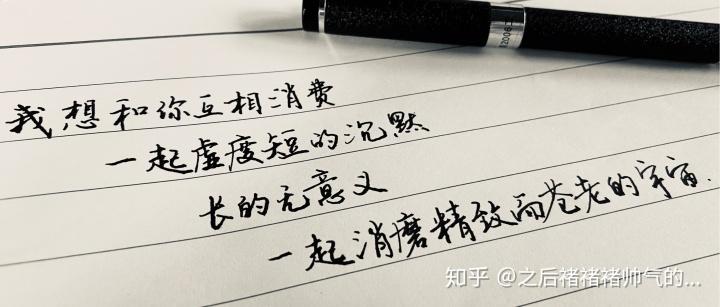 我想和你互相消费
一起虚度短的沉默
长的无意义
一起消磨精致而苍老的宇宙.
知乎 @之后褚褚褚帅气的...